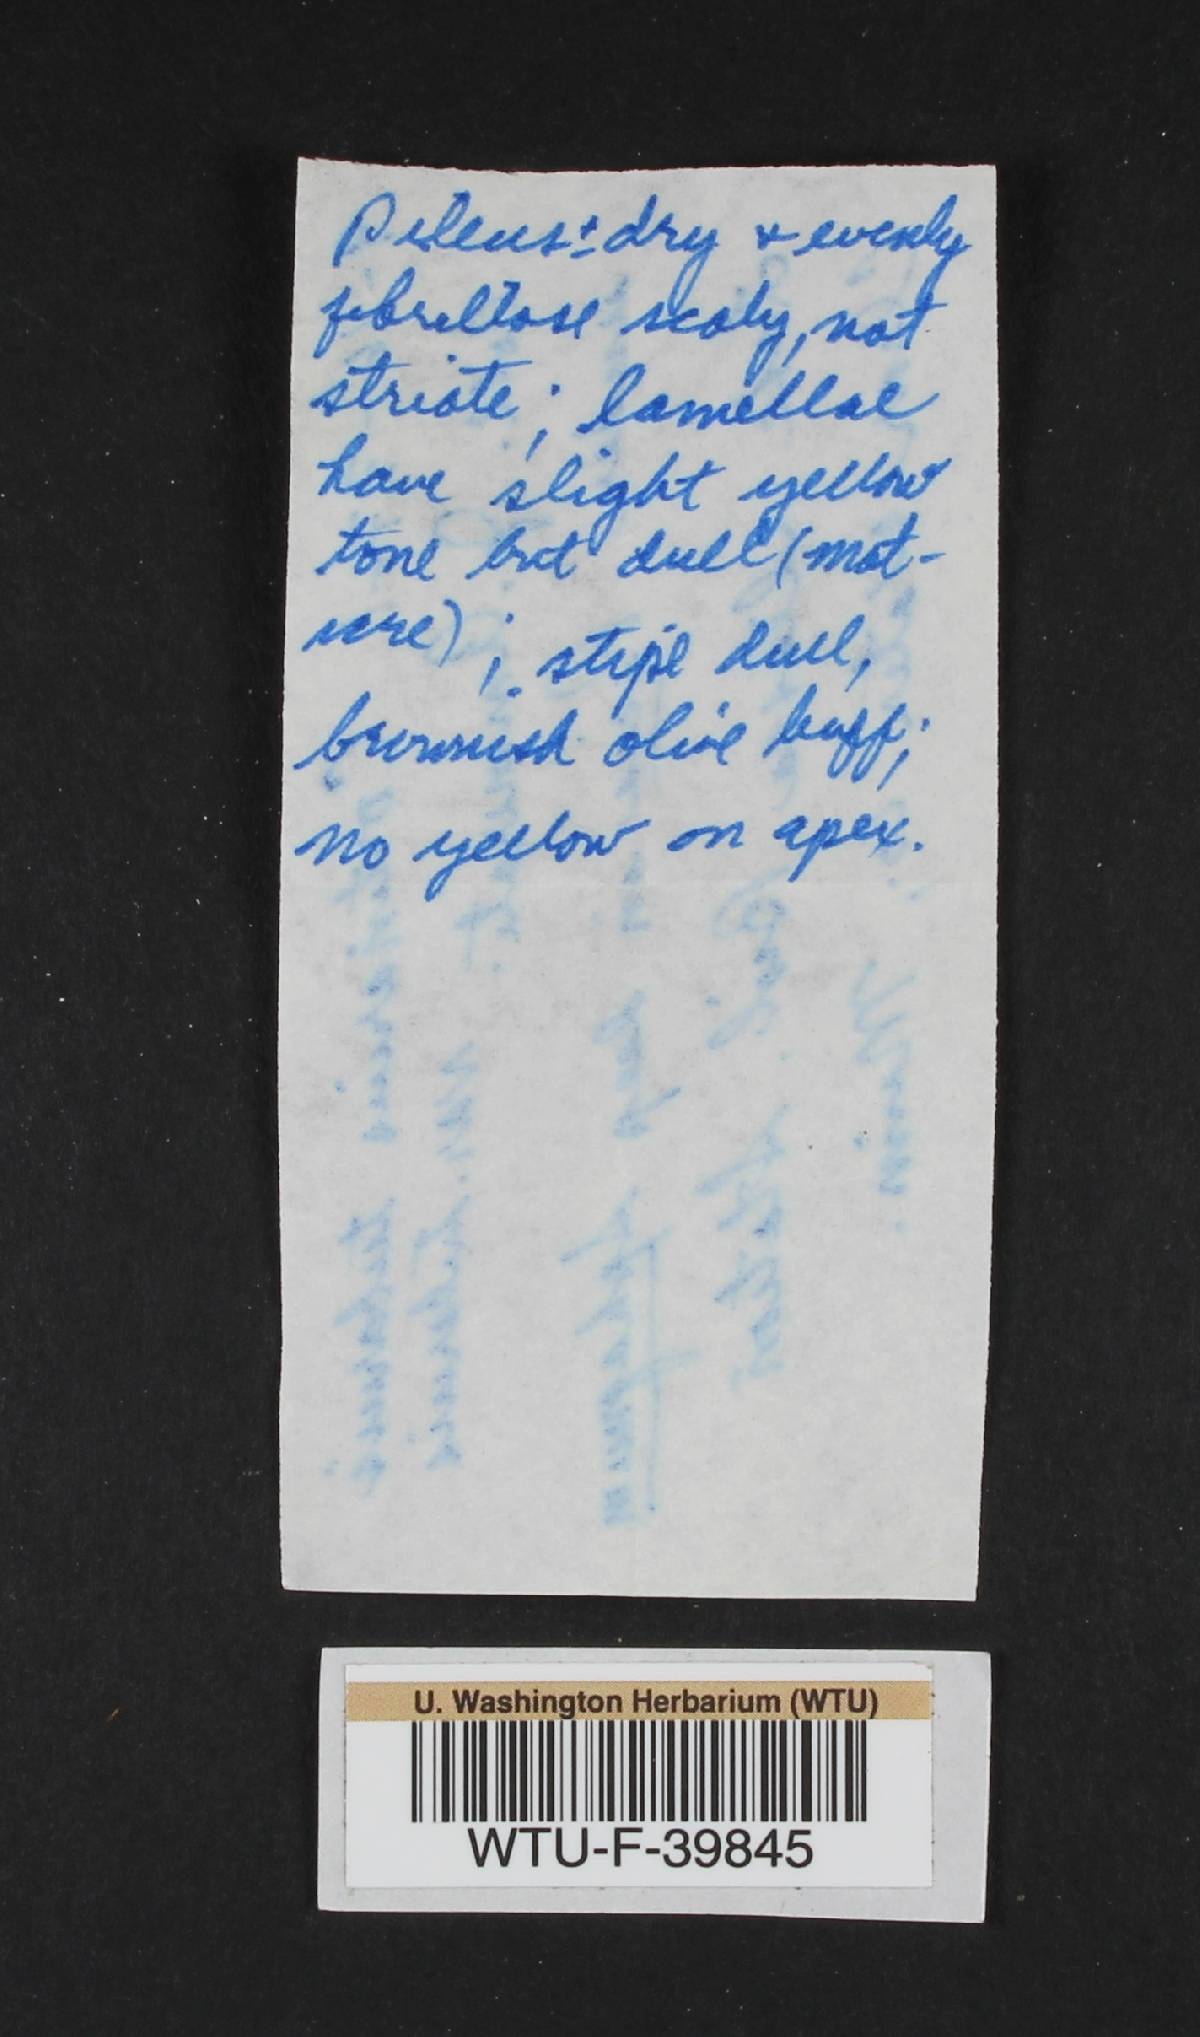 Pileus ± dry & evenly
fibrillose scaly, not
striate; lamellae
have slight yellow
tone but dull (mat-
ure); stipe dull,
brownish olive buff;
no yellow on apex.
U. Washington Herbarium (WTU)
WTU-F-39845